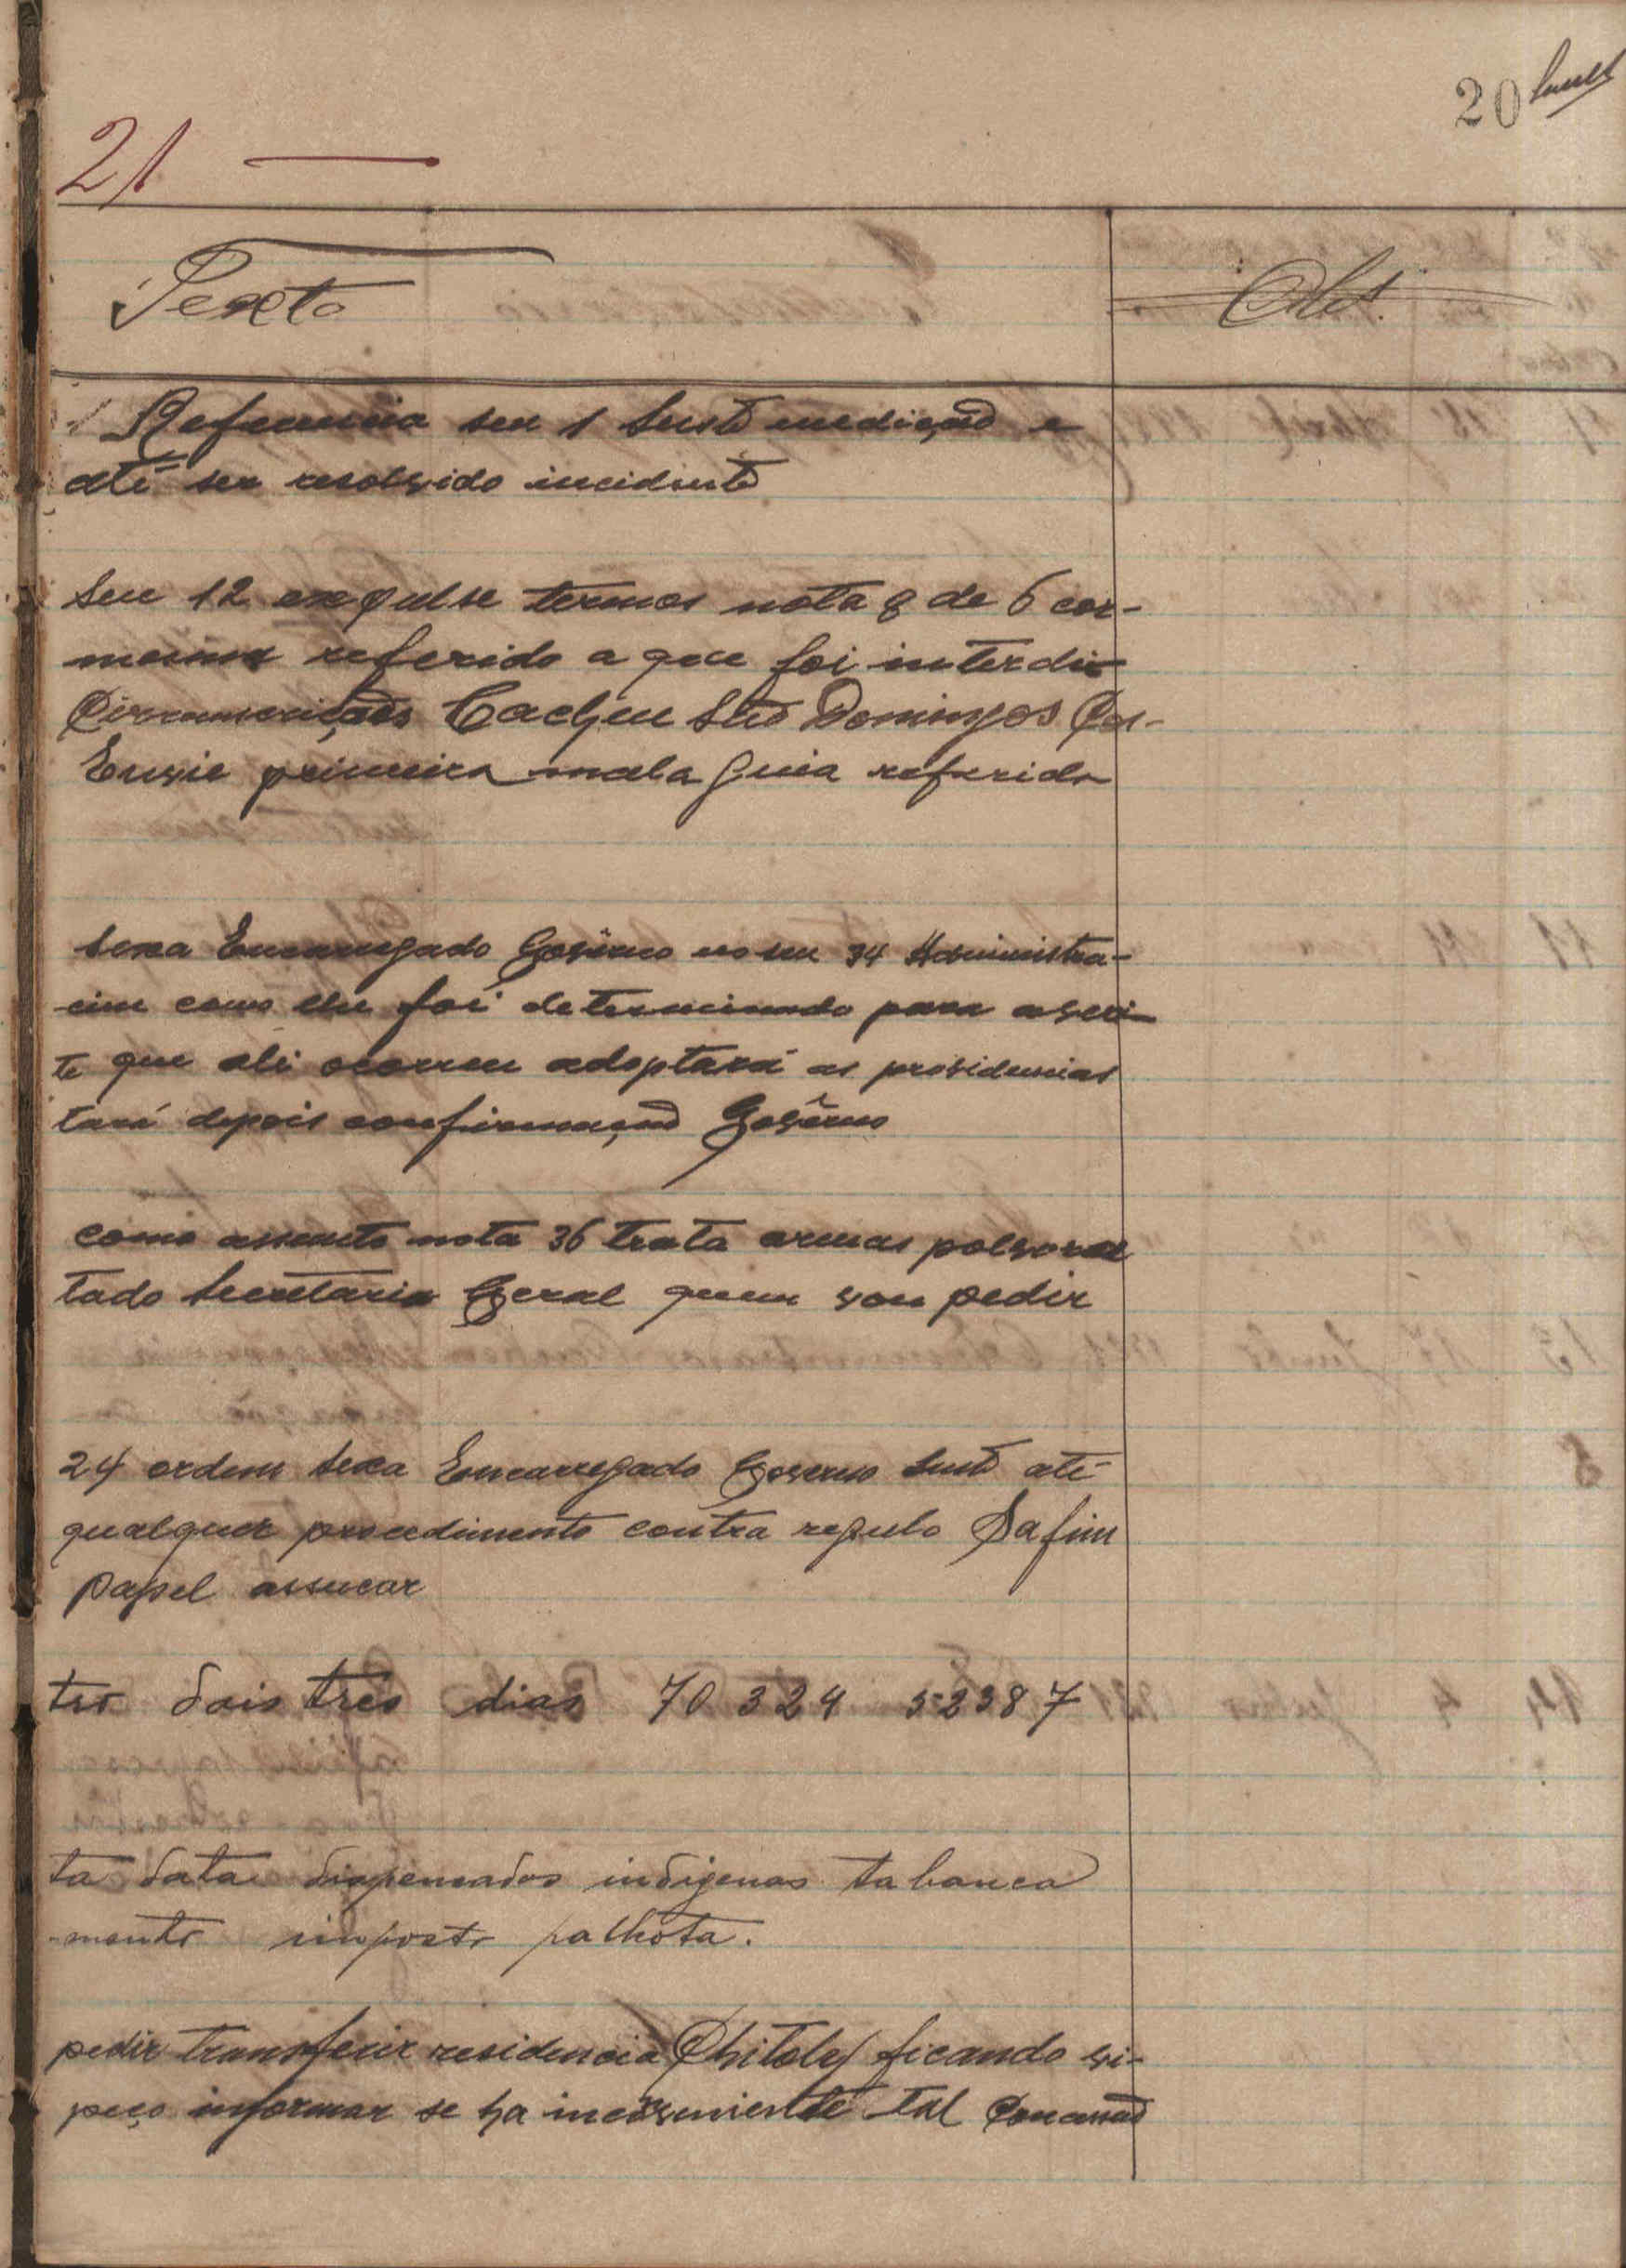 20
21
Texto
Obs.
Referencia seu 1 Susto medição e
até ser resolvido incidente
Seu 12 termos nota 8 de 6 cor-
referido a que foi interdi
Circumscrições Cacheu São Domingos
Envie primeira mala guia referida
Sexa Encarregado Govêrno no seu 34 Administra-
como lhe foi determinado para
te que ali ocorreu adoptará as providencias
tará depois confirmação Govêrno
como assunto nota 36 trata armas polvora
tado Secretaria Geral quem vou pedir
24 ordem Sexa Encarregado Governo Susto até
qualquer procedimento contra regulo Safim
papel assucar
tro dois três dias 70 324 52387
ta data dispensados indigenas tabanca
mento imposto palhota.
pedir transferir residencia Chitole ficando vi-
peço informar se ha inconveniente tal